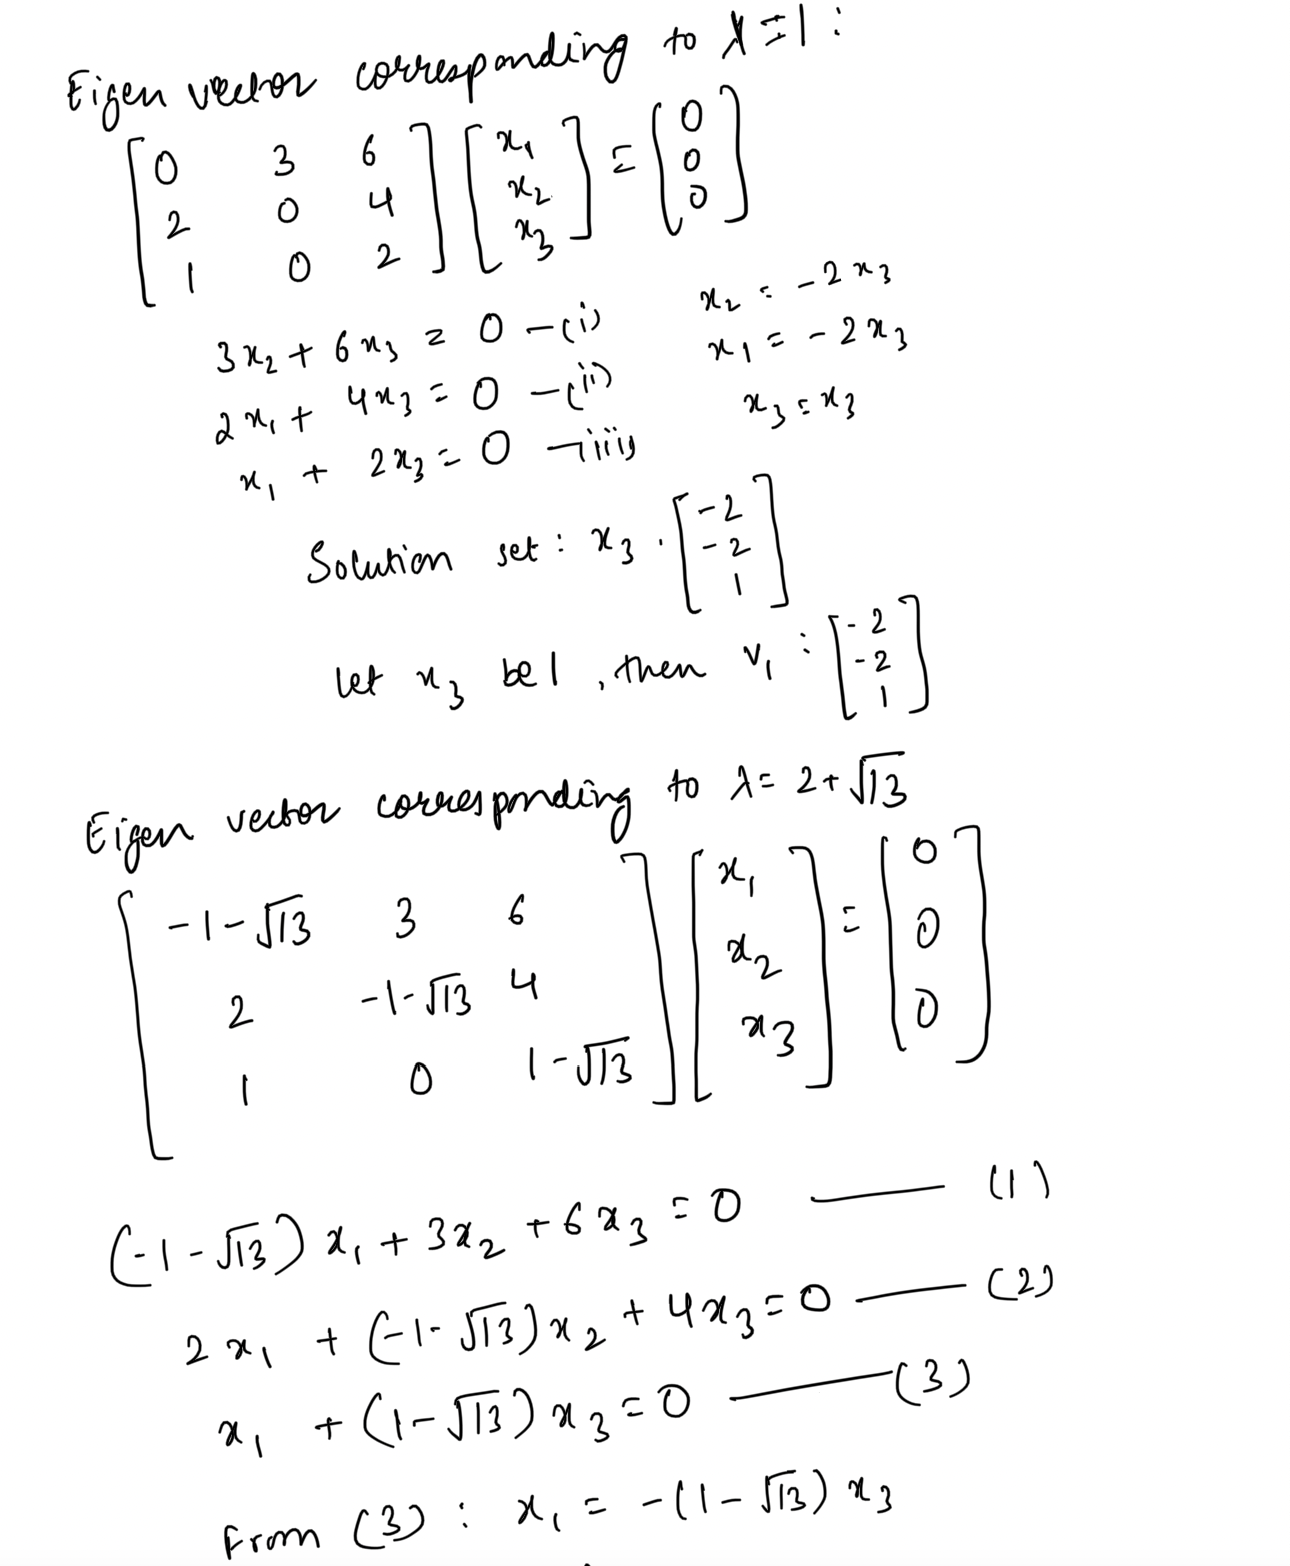 Eigen vector corresponding to λ = 1 :
[0 3 6; 2 0 4; 1 0 2] [x₁; x₂; x₃] = [0; 0; 0]
3x₂ + 6x₃ = 0 —(i)    x₂ = -2x₃
2x₁ + 4x₃ = 0 —(ii)    x₁ = -2x₃
x₁ + 2x₃ = 0 —(iii)    x₃ = x₃
Solution set : x₃ · [-2; -2; 1]
Let x₃ be 1, then v₁ : [-2; -2; 1]
Eigen vector corresponding to λ = 2+√13
[-1-√13 3 6; 2 -1-√13 4; 1 0 1-√13] [x₁; x₂; x₃] = [0; 0; 0]
(-1-√13) x₁ + 3x₂ + 6x₃ = 0 —— (1)
2x₁ + (-1-√13) x₂ + 4x₃ = 0 —— (2)
x₁ + (1-√13) x₃ = 0 —— (3)
From (3) : x₁ = -(1-√13) x₃